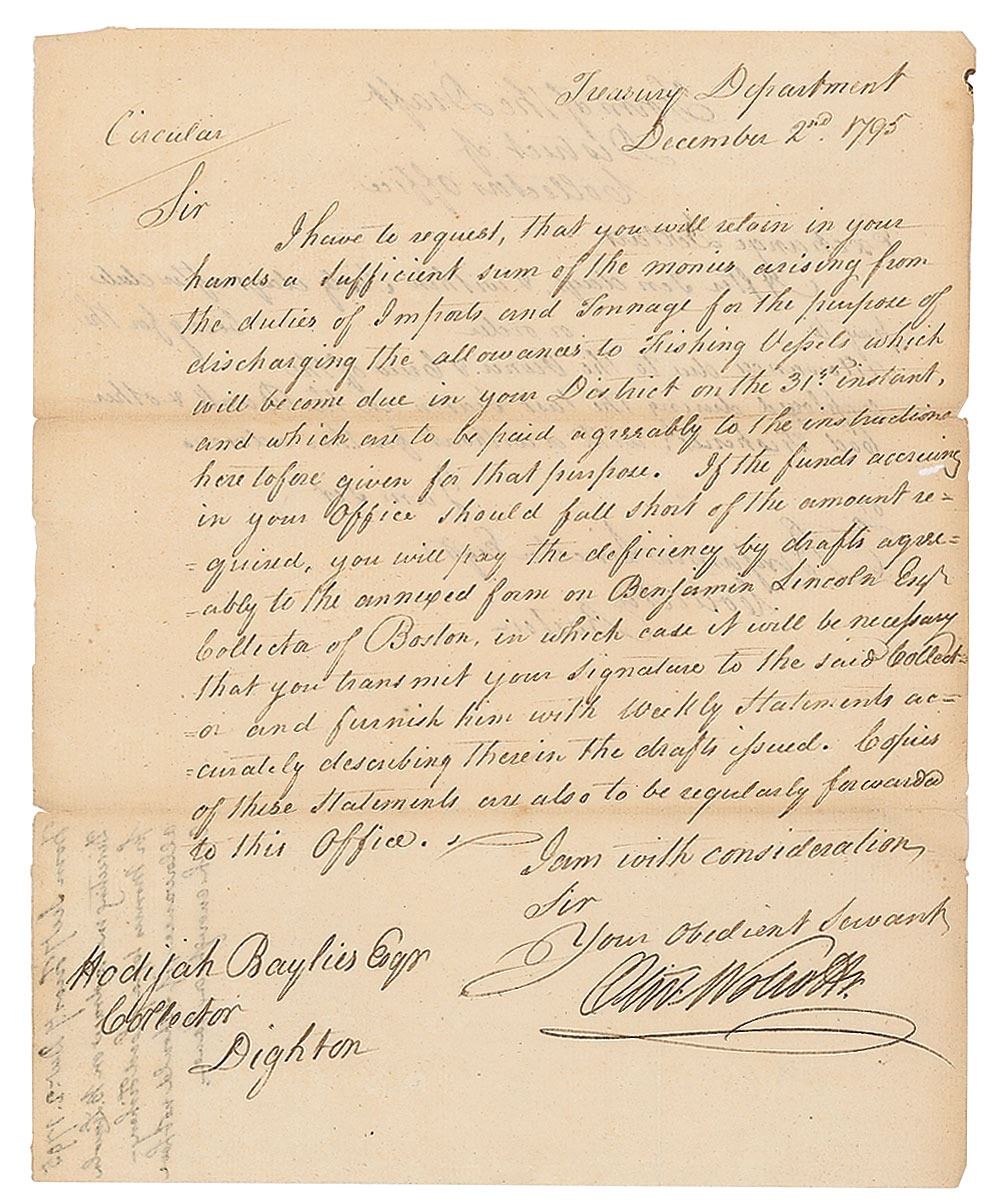 Treasury Department
Circular
December 2nd 1795
Sir
I have to request, that you will retain in your
hands a sufficient sum of the monies arising from
the duties of Imports and Tonnage for the purpose of
discharging the allowances to Fishing Vessels which
will become due in your District on the 31st instant,
and which are to be paid agreeably to the instructions
heretofore given for that purpose. If the funds accruing
in your Office should fall short of the amount re=
=quired, you will pay the deficiency by drafts agree=
=ably to the annexed form on Benjamin Lincoln Esqr
Collector of Boston, in which case it will be necessary
that you transmit your signature to the said Collect=
=or and furnish him with Weekly Statements ac=
=curately describing therein the drafts issued. Copies
of these Statements are also to be regularly forwarded
to this Office.
I am with consideration,
Sir
Your Obedient Servant
Oliv Wolcott Jr.
Hodijah Baylies Esqr
Collector
Dighton